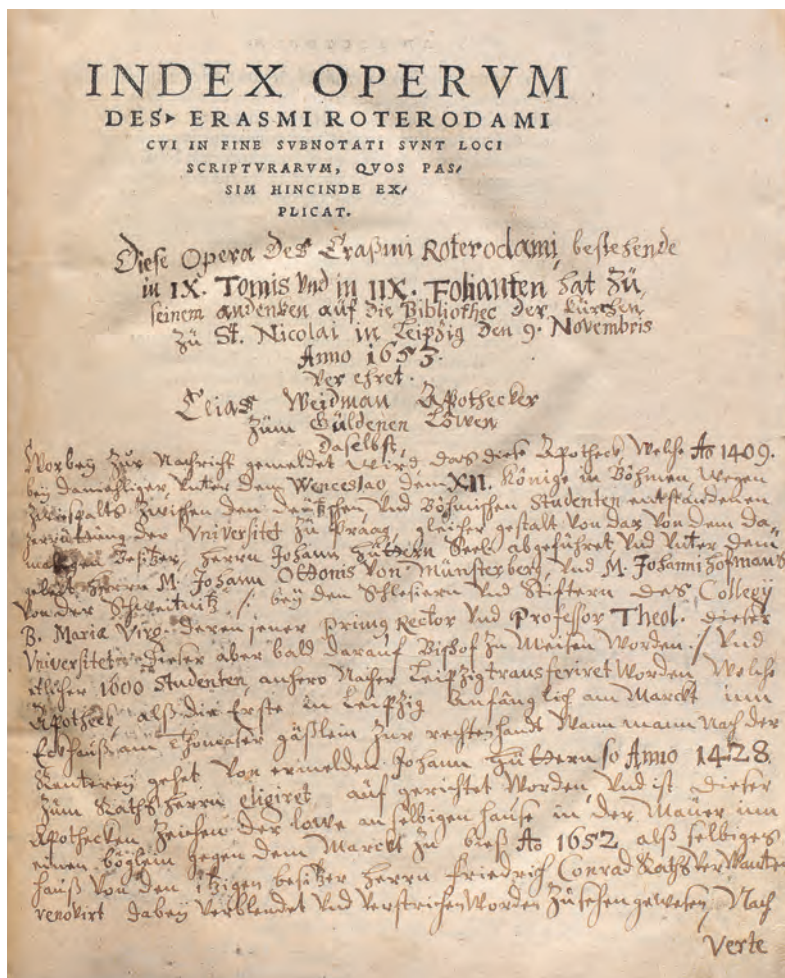 INDEX OPERVM
DES▸ ERASMI ROTERODAMI
CVI IN FINE SVBNOTATI SVNT LOCI
SCRIPTVRARVM, QVOS PAS/
SIM HINCINDE EX/
PLICAT.
Diese Opera Des Eraßmi Roterodami, bestehende
in IX. Tomis Vnd in IIX. Folianten hat zů
seinem andenken auf die Bibliothec der Kürchen
zů St. Nicolai in Leipzig den 9. Novembris
Anno 1653.
Ver ehret.
Elias Weidman Apothecker
zům Güldenen Löwen
Daselbst,
Worbey zůr Nachricht gemeldet wird, das diese Apotheck, Welche Ao 1409.
bey damahliger, Vnter dem Wenceslao dem XII. Könige in Böhmen, wegen
zwiespalts zwischen den deutschen, Vnd Böhmischen Studenten entstandenen
zerrüttung der Vniversitet zů Praag, gleicher gestalt Von dar Von dem da-
maligen Besitzer, Herrn Johann Hüttern Seel. abgeführet, Vnd Vnter dem
geleit Herrn M. Johann Ottonis Von Münsterberg, Vnd M. Johanni Hofmans
Von der Schweitnitz /: bey den Schlesiern Vnd Stiftern des Collegij
B. Mariæ Virg. deren jener Primus Rector Vnd Professor Theol. dieser
Vniversitet, dieser aber bald darauf Bischof zu Meißen Worden :/ Vnd
etlicher 1600 Studenten, anhero Nacher Leipzig transferiret Worden, Welche
Apotheck, alß die Erste in Leipzig Anfänglich am Marckt inn
Eckhauß am Thomaser gäßlein zur rechten hand Wann mann Nach der
Kanterey gehet Von ermelden Johann Hüttern so Anno 1428.
zům Raths Herrn eligiret, auf gerichtet Worden, Vnd ist dieser
Apothecken zeichen der lowe an selbigen hauße in der Maüer inn
einen böglein gegen dem Marckt zu bieß Ao 1652. alß selbiges
hauß Von den itzigen besitzer Herrn Friedrich Conrad Raths Verwanten
renovirt dabey Verblendet Vnd Verstrichen Worden zů sehen gewesen, Nach
Verte